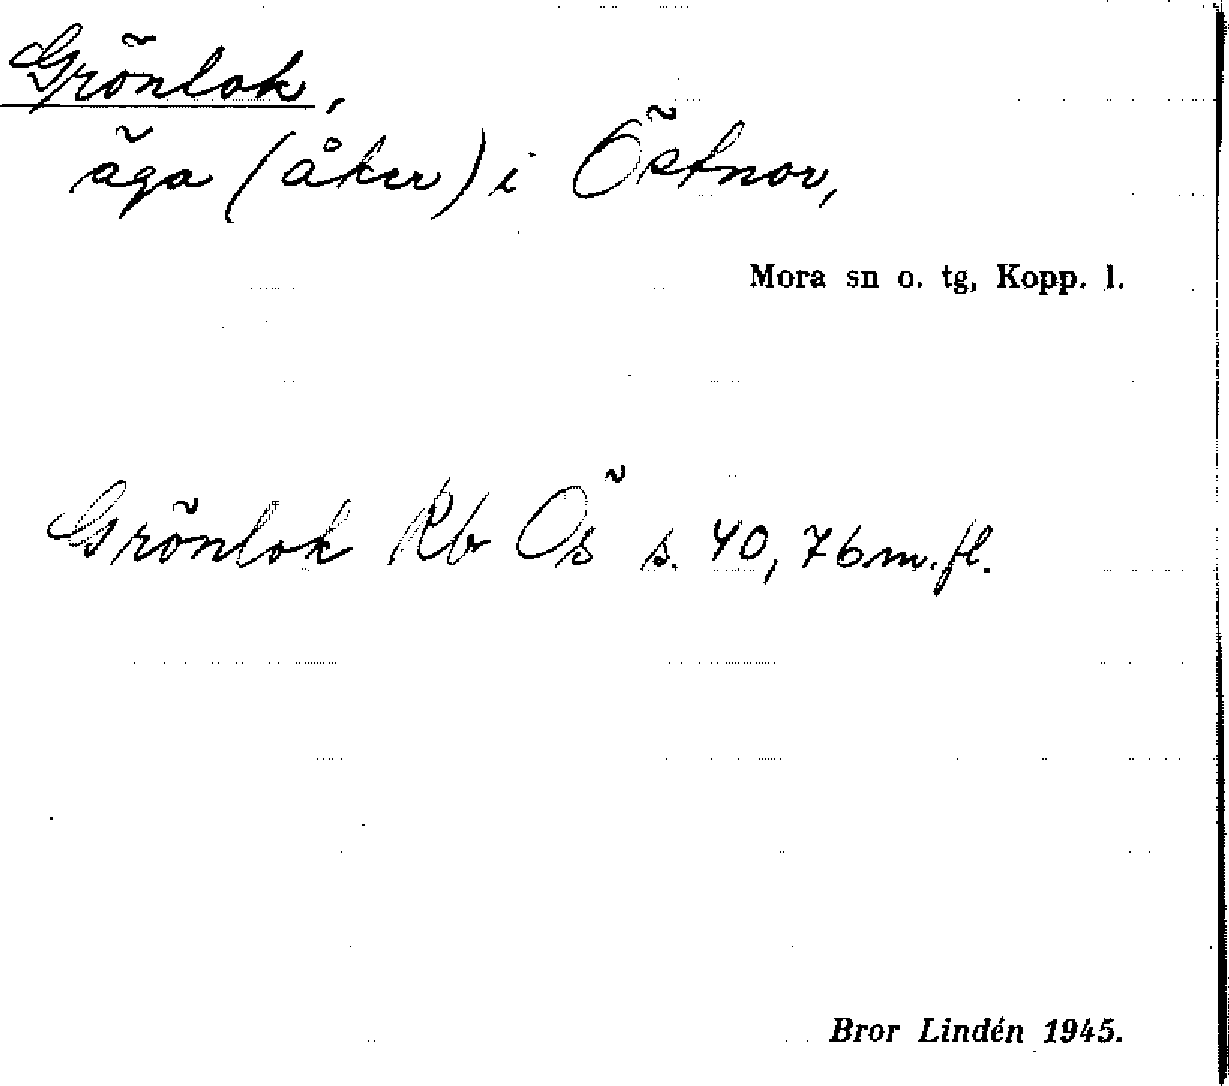 Grönlok,
äga (åker) i Östnor,
Mora sn o. tg, Kopp. l.
Grönlok Rb Ös s. 40, 76 m. fl.
Bror Lindén 1945.